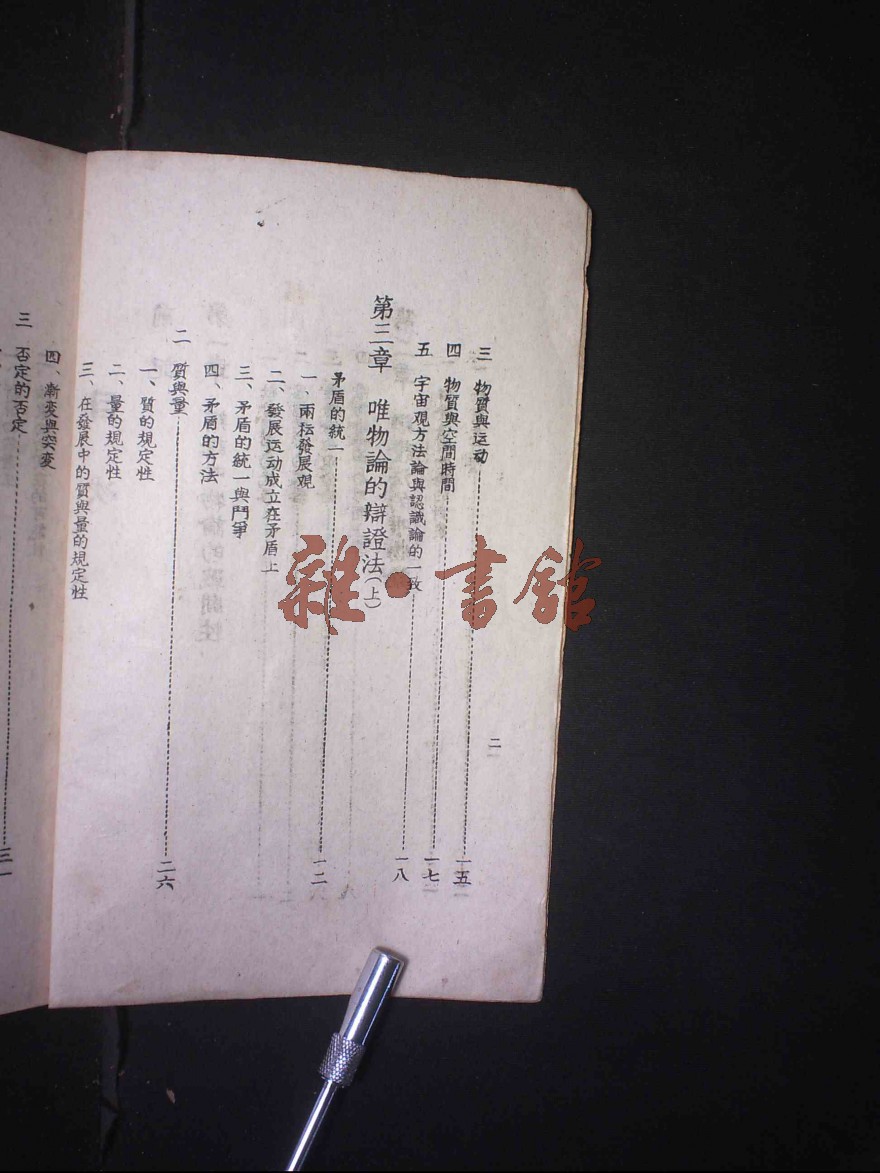 三 物質與运动 一五
四 物質與空間時間 一七
五 宇宙观方法論與認識論的一致 一八
第三章 唯物論的辯證法(上)
矛盾的統一 一二
一、兩标發展觀
二、發展运动成立在矛盾上
三、矛盾的統一與鬥爭
四、矛盾的方法
二 質與量 二六
一、質的規定性
二、量的規定性
三、在發展中的質與量的規定性
四、漸变與突变
三 否定的否定 三一
二
雜·書館